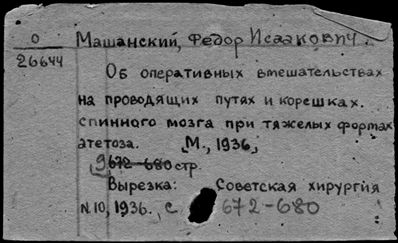 О
26644
Машанский, Федор Исаакович.
Об оперативных вмешательствах
на проводящих путях и корешках.
спинного мозга при тяжелых формах
атетоза. М., 1936,
9 672-680 стр.
Вырезка: Советская хирургия
N.10, 1936. с. 672-680